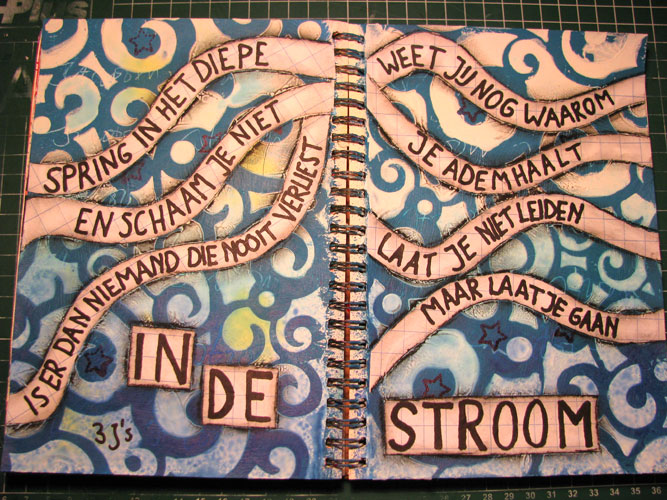 SPRING IN HET DIEPE
EN SCHAAM JE NIET
IS ER DAN NIEMAND DIE NOOIT VERLIEST
IN
DE
3J's
WEET JIJ NOG WAAROM
JE ADEMHAALT
LAAT JE NIET LEIDEN
MAAR LAAT JE GAAN
STROOM